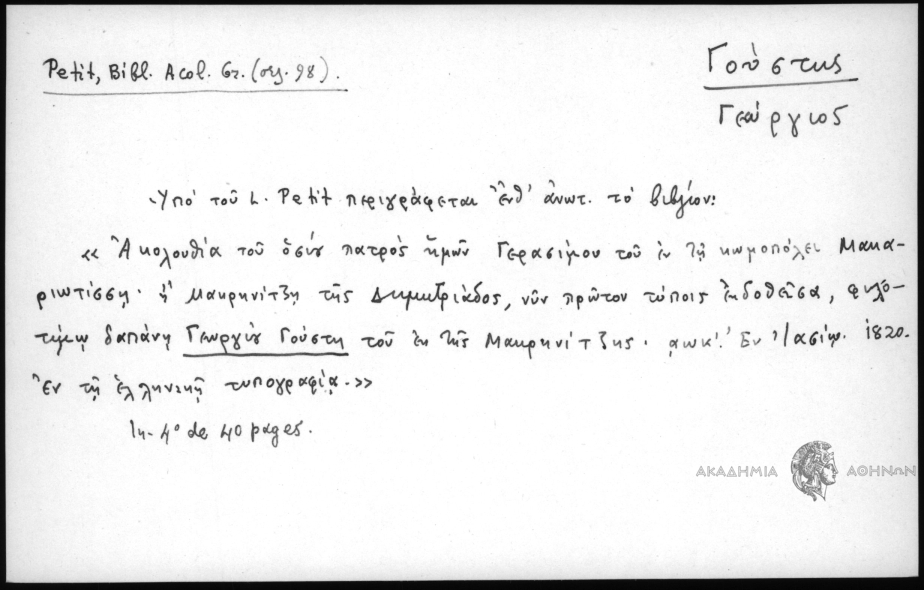 Petit, Bibl. Acol. Gr. (σελ. 98).
Γούστης
Γεώργιος
Ὑπό τοῦ L. Petit περιγράφεται ἔνθ' ἀνωτ. τό βιβλίον:
«Ἀκολουθία τοῦ ὁσίου πατρός ἡμῶν Γερασίμου τοῦ ἐν τῇ κωμοπόλει Μακα-
ριωτίσσῃ· ἤ Μακρηνίτζῃ τῆς Δημητριάδος, νῦν πρῶτον τύποις ἐκδοθεῖσα, φιλο-
τίμῳ δαπάνῃ Γεωργίου Γούστη τοῦ ἐκ τῆς Μακρηνίτζης. αωκ΄. Ἐν Ἰασίῳ. 1820.
Ἐν τῇ ἑλληνικῇ τυπογραφίᾳ.»
In-4° de 40 pages.
ΑΚΑΔΗΜΙΑ ΑΘΗΝΩΝ